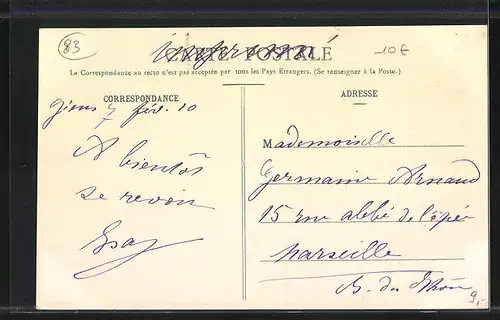 83
CARTE POSTALE
10€
La Correspondance au recto n'est pas acceptée par tous les Pays Étrangers. (Se renseigner à la Poste.)
CORRESPONDANCE
Giens 7 fév. 10
A bientôt
se revoir
ADRESSE
Mademoiselle
Germaine Arnaud
15 rue abbé de l'épée
Marseille
B. du Rhône
9,-